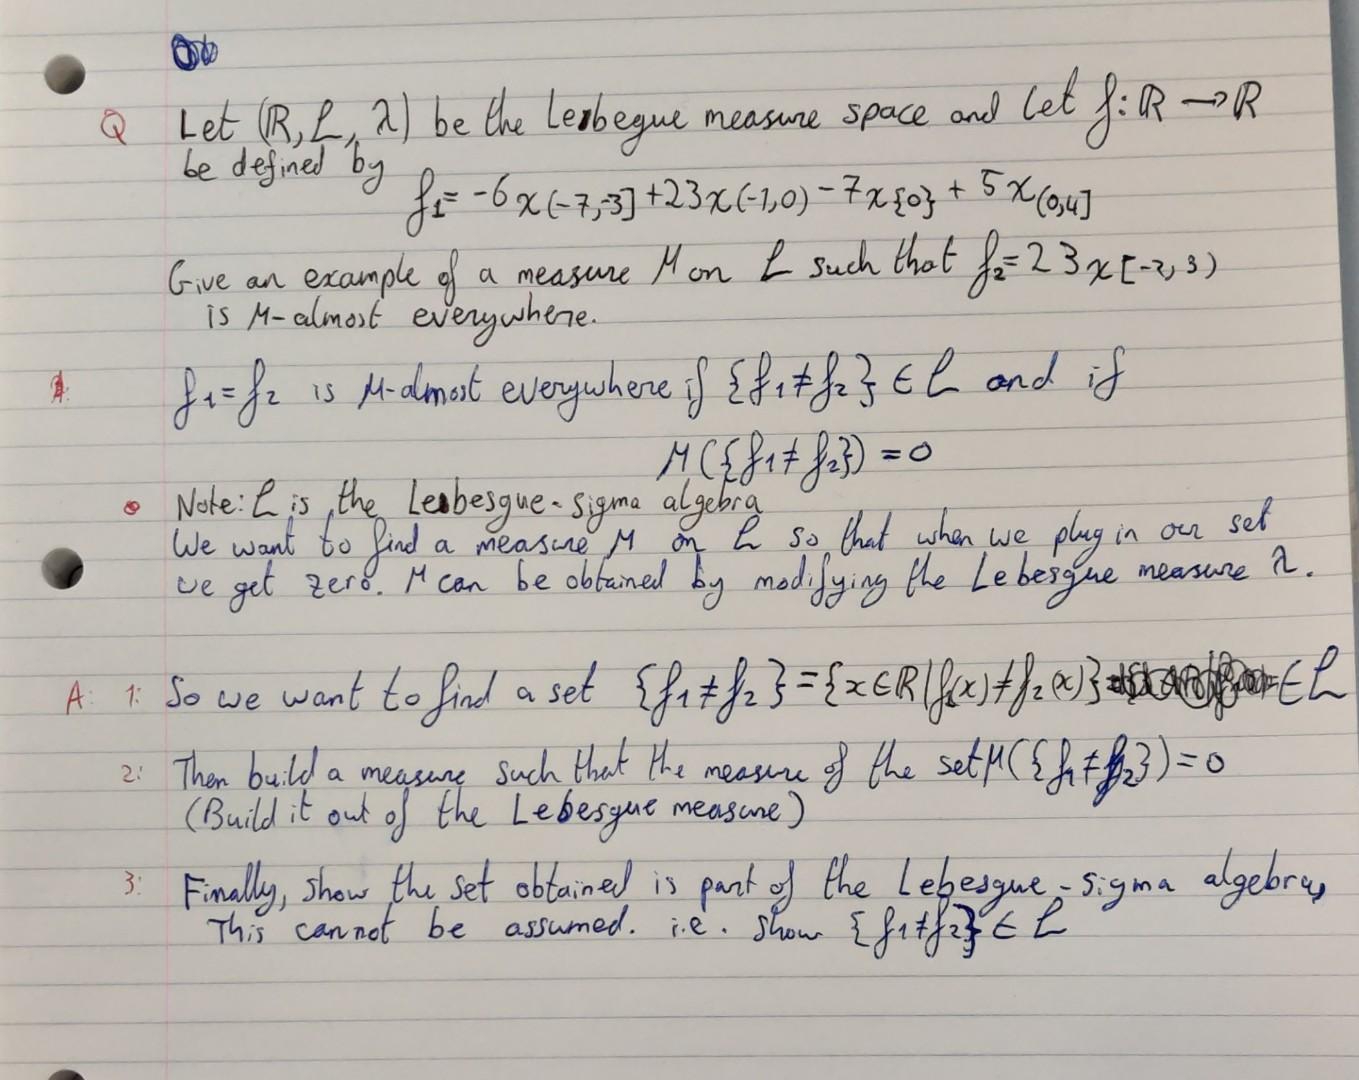 Q Let (ℝ, ℒ, λ) be the Lesbegue measure space and let f: ℝ → ℝ
be defined by
f₁= -6χ(-7,-3] + 23χ(-1,0) - 7χ{0} + 5χ(0,4]
Give an example of a measure M on ℒ such that f₂= 23χ[-2,3)
is M-almost everywhere.
f₁=f₂ is M-almost everywhere if {f₁≠f₂} ∈ ℒ and if
M({f₁≠f₂}) = 0
Note: ℒ is the Lesbesgue-sigma algebra
We want to find a measure M on ℒ so that when we plug in our set
we get zero. M can be obtained by modifying the Lebesgue measure λ.
A: 1: So we want to find a set {f₁≠f₂} = {x∈ℝ|f₁(x)≠f₂(x)} ∈ ℒ
2: Then build a measure such that the measure of the set M({f₁≠f₂})=0
(Build it out of the Lebesgue measure)
3: Finally, show the set obtained is part of the Lebesgue-sigma algebra,
This cannot be assumed. i.e. show {f₁≠f₂} ∈ ℒ